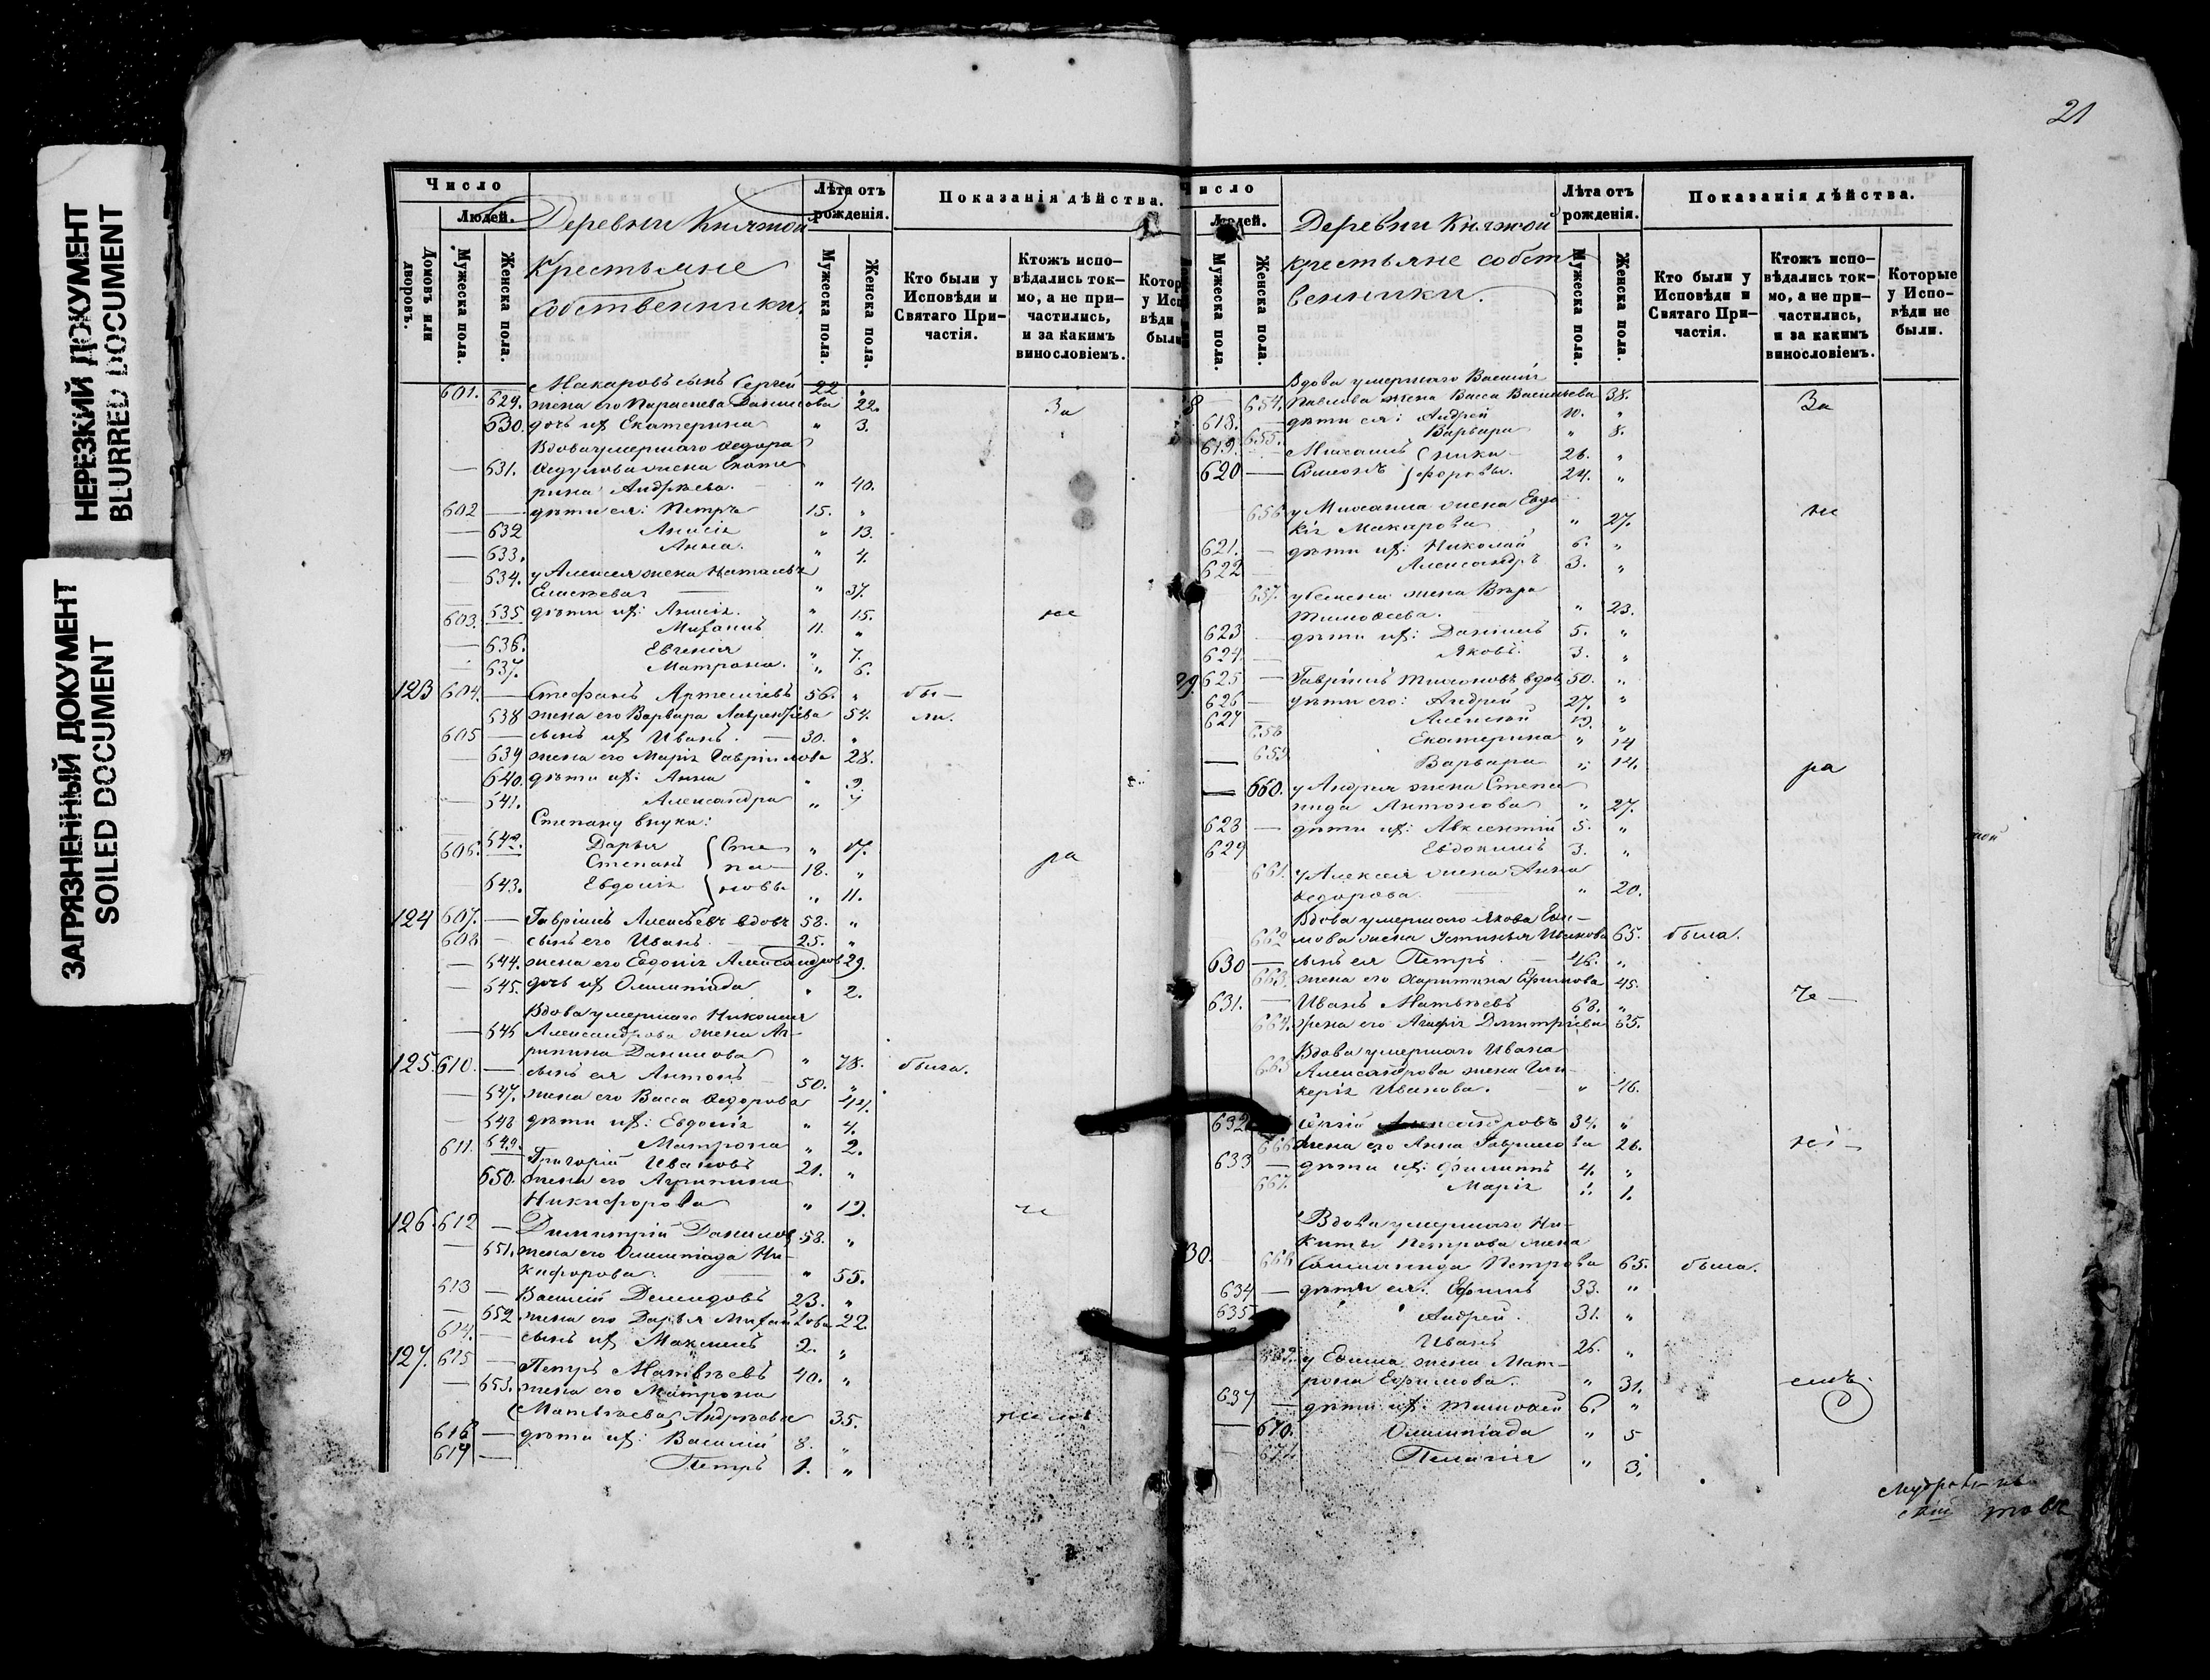 НЕРЕЗКИЙ ДОКУМЕНТ
BLURRED DOCUMENT
ЗАГРЯЗНЕННЫЙ ДОКУМЕНТ
SOILED DOCUMENT
Число
Людей.
Домовъ или дворовъ.
Мужеска пола.
Женска пола.
Деревни Княжой
крестьяне
собственники.
Лѣта отъ рожденія.
Мужеска пола.
Женска пола.
Показанія дѣйства.
Кто были у Исповѣди и Святаго Причастія.
Ктожъ исповѣдались токмо, а не причастились, и за какимъ винословіемъ.
Котор
у Исп
вѣди
были
601. Макаровъ сынъ Сергей 22 "
629. жена его Параскева Данилова 22. За
630. дочь их Екатерина " 3.
Вдова умершаго Ѳедора
— 631. жена Екате
рина Андрѣева. " 40.
602 — дѣти ея: Петръ 15. "
— 632 Анисія " 13.
— 633. Анна. " 4.
634. у Алексея жена Наталья
Елисѣева " 37.
635 дѣти их: Анисія. " 15. не
603. Михаилъ 11. "
— 636. Евгенія " 7.
— 637. Матрона. " 6.
123 604. — Стефанъ Артемьевъ 56. " бы-
638 жена его Варвара Лаврентьева 54. ли.
605 — сынъ их Иванъ. — 30. "
639 жена его Марія Гавріилова 28.
640. дѣти их: Анна " 9.
— 641. Александра " 7
Степану внуки:
642. Дарья Сте " 17.
606. Степанъ па 18. " ра
643. Евдокія новы " 11.
124 607. — Гавріилъ Алексѣевъ вдовъ 58. "
608 — сынъ его Иванъ. 25. "
— 644. жена его Евдокія Александров 29.
— 645. дочь их Олимпіада " 2.
Вдова умершаго Николая
— 646 Александрова жена Аг-
рипина Данилова " 78. была.
125. 610. — сынъ ея Антонъ — 50. "
— 647. жена его Васса Ѳедорова 44.
— 648 дѣти их: Евдокія " 4.
649. Матрона " 2.
611. Григорій Ивановъ 21. "
650. жена его Агрипина
Никифорова " 19.
126. 612 — Димитрій Данилов 58. "
— 651. жена его Олимпіада Ни-
кифорова. — " 55.
613 — Василій Демидовъ 23. "
— 652 жена его Дарья Михайлова 22.
614. — сынъ их Максимъ 2. "
127. 615 — Петръ Матвѣевъ 40. "
— 653. жена его Матрона
Матвѣева Андрѣева 35.
616 — дѣти их: Василій 8. "
617 — Петръ 1. "
21
исло
Людей.
Мужеска пола.
Женска пола.
Деревни Княжой
крестьяне собст
венники.
Лѣта отъ рожденія.
Мужеска пола.
Женска пола.
Показанія дѣйства.
Кто были у Исповѣди и Святаго Причастія.
Ктожъ исповѣдались токмо, а не причастились, и за какимъ винословіемъ.
Которые у Исповѣди не были.
Вдова умершаго Василія
8 — 654. Павлова жена Васса Васильева 38. За
618. — дѣти ея: Андрей 10. "
655. Варвара " 8.
619. — Михаилъ Ники 26. "
620 — Симеонъ форовы. 24. "
656 у Михаила жена Евдо
кія Макарова " 27. не
621. — дѣти их: Николай 6. "
622 Александръ 3. "
657. у Семена жена Вѣра
Тимоѳеева. " 23.
623 — дѣти их: Даніилъ 5. "
624 — Яковъ. 3. "
29. 625 — Гавріилъ Тихоновъ вдов. 50. "
626 — дѣти его: Андрей 27. "
627 Алексѣй 19. "
658 Екатерина " 14
— 659 Варвара " 14. ра
— 660. у Андрея жена Степа
нида Антонова " 27.
628 — дѣти их: Авксентій 5. "
629 Евдокимъ 3. "
661. у Алексея жена Анна
Ѳедорова. " 20.
Вдова умершаго Якова
662 жена Устинья Иванова 65. была.
630 — сынъ ея Петръ. — 46. "
663. жена его Харитина Ефимова 45.
631. — Иванъ Матвѣевъ 68. " че —
664. жена его Агафія Дмитріева 65.
Вдова умершаго Ивана
665 Александрова жена Гли-
керія Иванова. " 46.
632 Сергій Александровъ 34. "
666 жена его Анна Гаврилова 26. ні —
633 — дѣти их: Филиппъ 4. "
667. Марія " 1.
Вдова умершаго Ни-
киты Петрова жена
30. 668 Соломонида Петрова 65. была.
634 — дѣти ея: Ефимъ 33. "
635 Андрей. 31. "
Иванъ 26. "
669. у Ефима жена Мат-
рона Ефимова. " 31. емъ.
637 — дѣти их: Тимоѳей 6. "
— 670. Олимпіада " 5
671. Пелагія " 3.